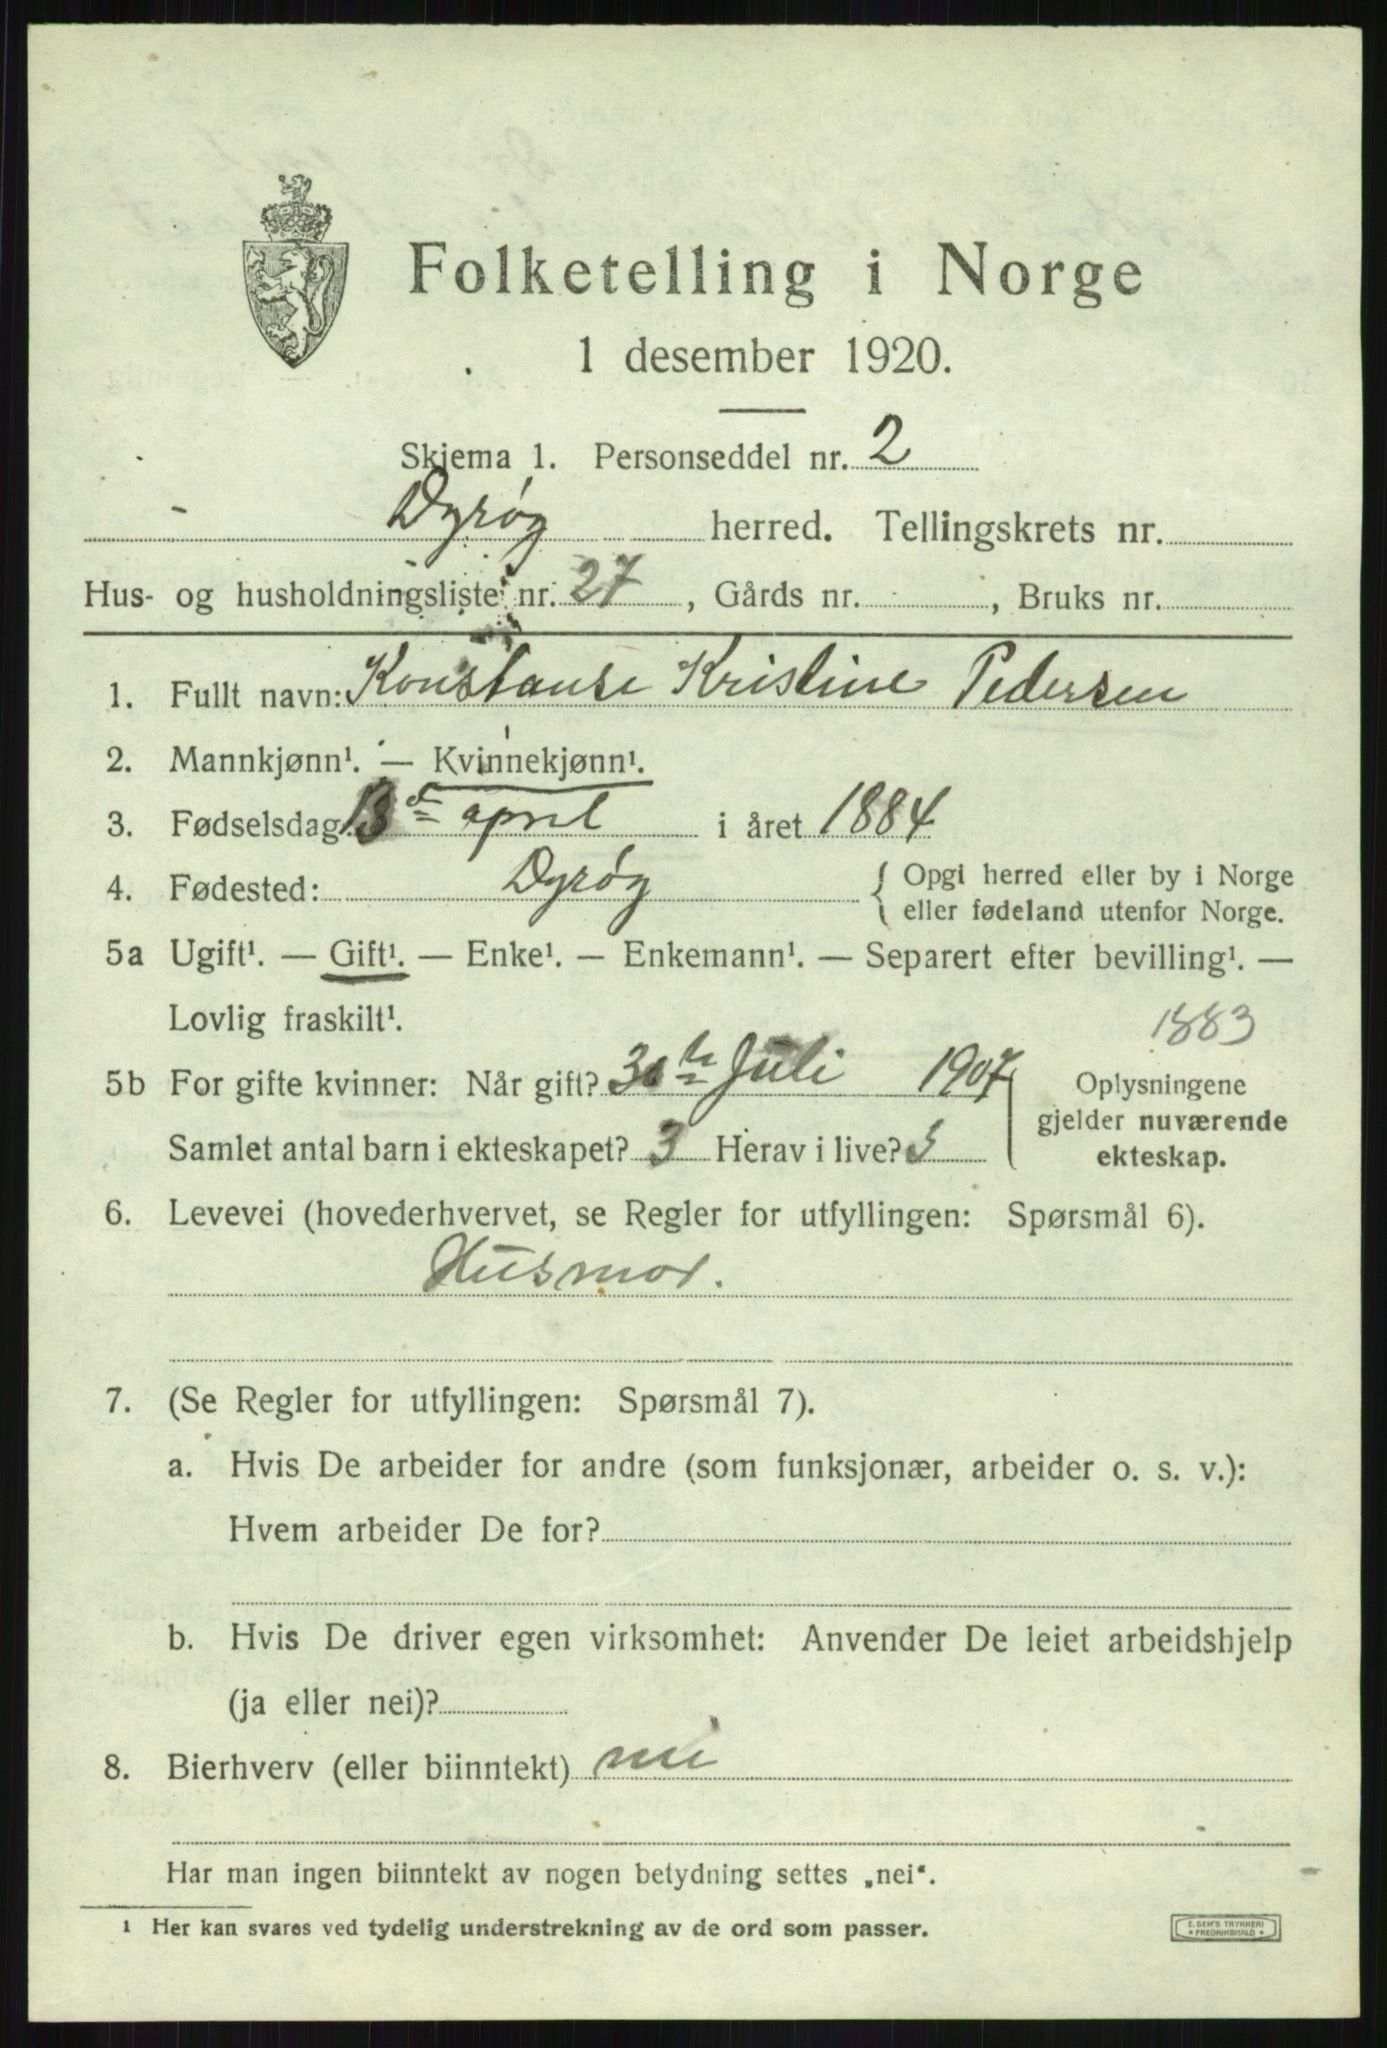 Folketelling i Norge
1 desember 1920.
Skjema 1. Personseddel nr. 2
Dyrøy herred. Tellingskrets nr.
Hus- og husholdningsliste nr. 27, Gårds nr. , Bruks nr.
1. Fullt navn: Konstanse Kristine Pedersen
2. Mannkjønn¹. — Kvinnekjønn¹.
3. Fødselsdag 13 april i året 1884
4. Fødested: Dyrøy { Opgi herred eller by i Norge
eller fødeland utenfor Norge.
5a Ugift¹. — Gift¹. — Enke¹. — Enkemann¹. — Separert efter bevilling¹. —
Lovlig fraskilt¹.
1883
5b For gifte kvinner: Når gift? Juli 1907 Oplysningene
gjelder nuværende
Samlet antal barn i ekteskapet? 3 Herav i live?
ekteskap.
6. Levevei (hovederhvervet, se Regler for utfyllingen: Spørsmål 6).
Husmor.
7. (Se Regler for utfyllingen: Spørsmål 7).
a. Hvis De arbeider for andre (som funksjonær, arbeider o. s. v.):
Hvem arbeider De for?
b. Hvis De driver egen virksomhet: Anvender De leiet arbeidshjelp
(ja eller nei)?
8. Bierhverv (eller biinntekt) nei
Har man ingen biinntekt av nogen betydning settes „nei“.
¹ Her kan svares ved tydelig understrekning av de ord som passer.
E. SEM'S TRYKKERI
* FREDRIKSHALD *